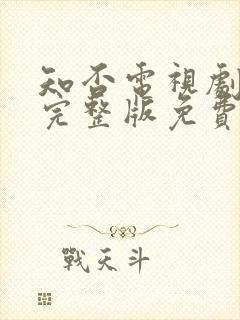 知否電視劇
完整版免費
戰天斗